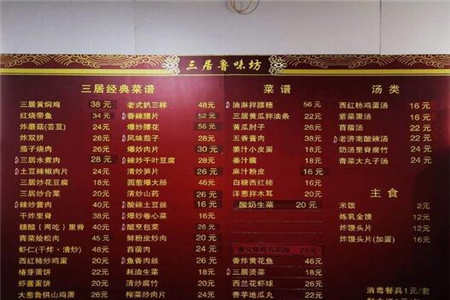 三居鲁味坊
三居经典菜谱
三居黄焖鸡 38元
红烧带鱼 34元
炸蘑菇(芸豆) 24元
炸双饼 28元
茄子烧肉 26元
三居水煮肉 28元
土豆辣椒肉片 24元
三居炒花豆腐 18元
三居炒合菜 20元
辣炒蛋肉
干炸里脊 40元
糖醋(两吃)里脊 40元
青菜烩松肉 45元
虾仁(干炸·清炒) 48元
西红柿炒鸡蛋 20元
椿芽蛋饼 22元
虾酱蛋饼 20元
大葱煎山鸡蛋
老式扒三样 48元
香辣腰片 52元
爆炒腰花 56元
风味茄子 28元
爆炒肉片 30元
辣炒千叶豆腐 22元
清炒笋片 26元
圆葱爆大肠 46元
清炒山药 26元
酸辣土豆丝 16元
爆炒卷心菜 16元
醋烹包菜 26元
蒜粉皮炒肉 20元
首菌肉 24元
鱼香肉丝 26元
耗油生菜 18元
清炒腐竹 20元
榨菜炒肉片 20元
菜谱
油淋拌腰穗 56元
三居黄瓜拌油条 22元
黄瓜肘子 26元
葱油木耳 20元
姜汁小皮蛋
姜汁藕 18元
麻汁粉皮 16元
白辣西红柿 16元
洋葱拌木耳 20元
酸奶生菜 20元
香炸黄花鱼
三居烫菜 18元
西兰花虾球
香芋地瓜丸
汤类
西红柿鸡蛋汤 16元
炸蛋汤 16元
苜蓿汤 22元
老济南酸辣汤 22元
奶汤里脊腐竹 24元
青菜大丸子汤 34元
主食
米饭 2元
炼乳金馒 16元
炸馒头片 12元
炸馒头片(加蛋) 16元
消毒餐具1元/套